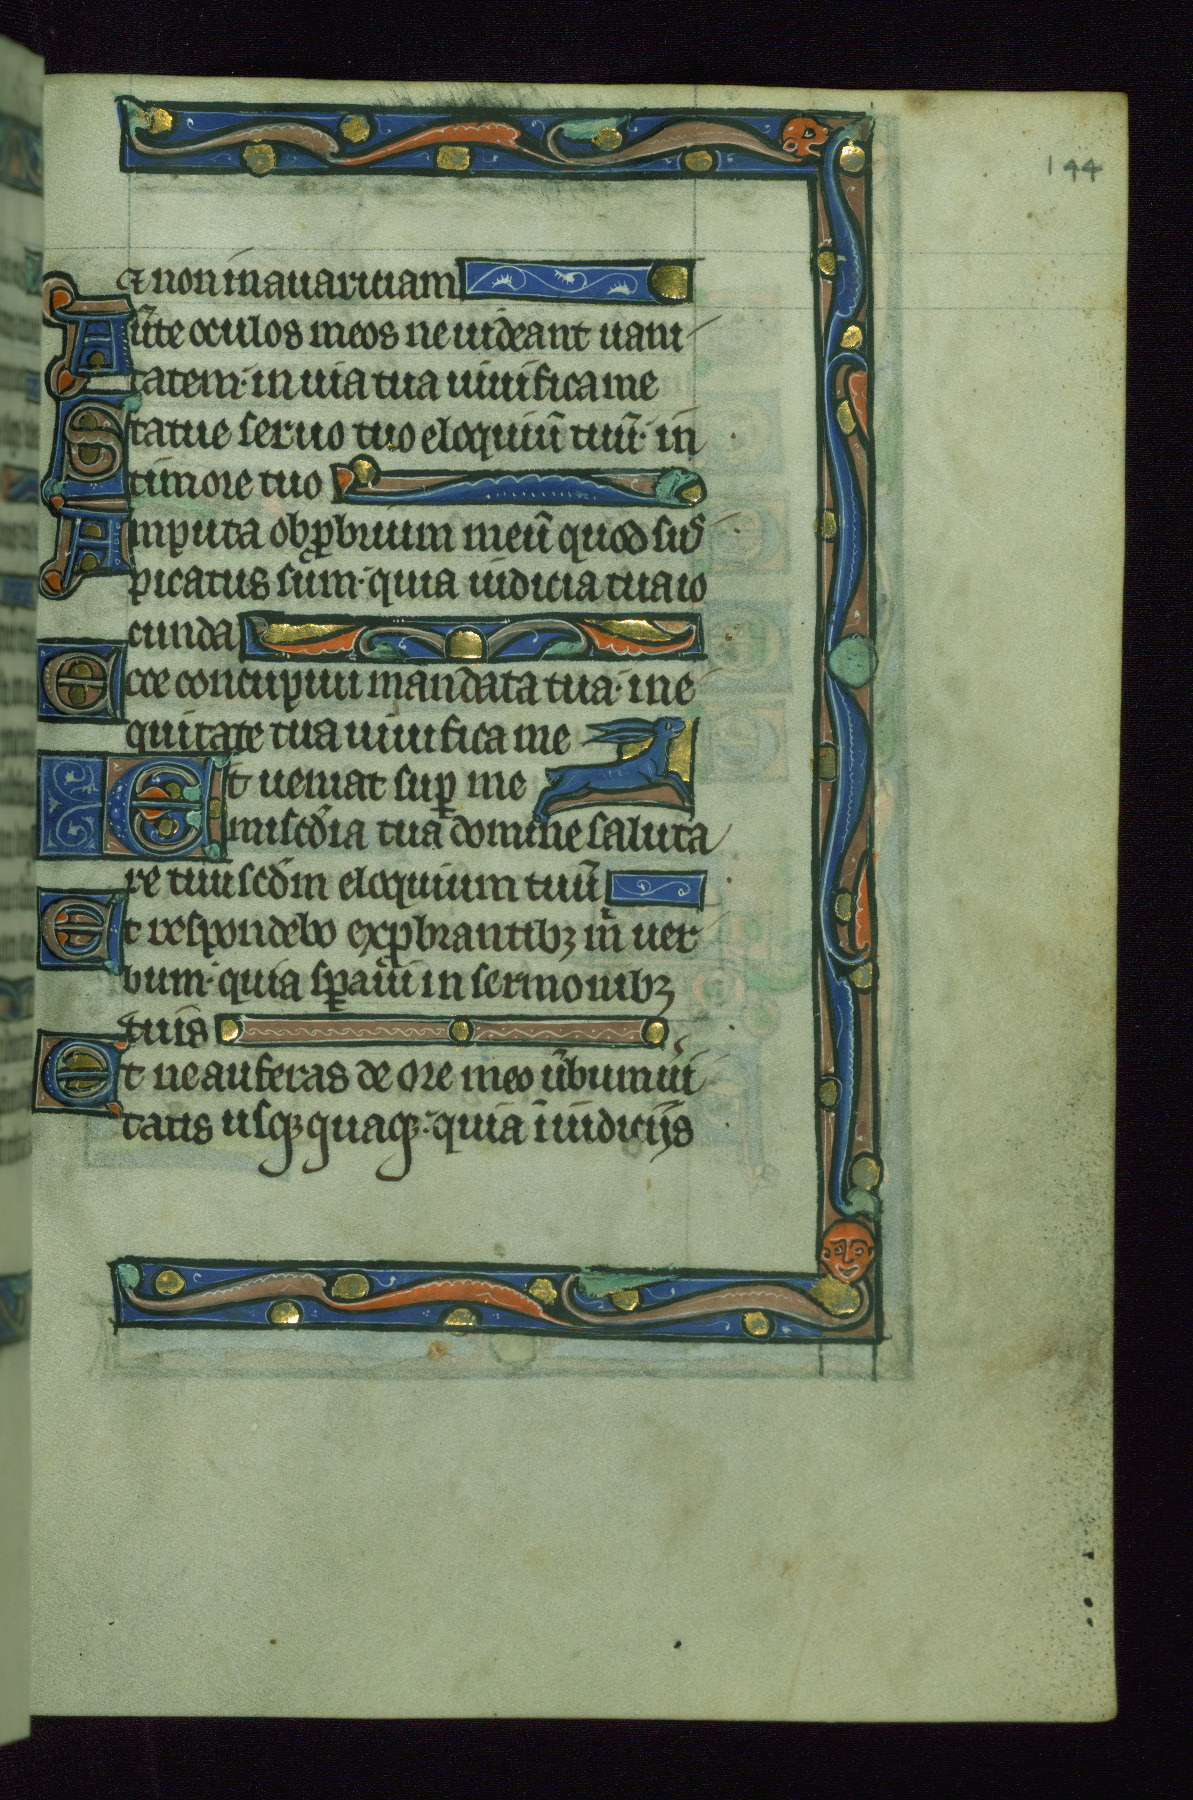 144
⁊ non in auariciam
Aūte oculos meos ne uideant uani
tatem· in uia tua uiuifica me
Statue seruo tuo eloquiū tuū· in
timore tuo
Amputa obp̱brium meū quod sus
picatus sum· quia iudicia tua io
cunda
Ecce concupiui mandata tua· in e
quitate tua uiuifica me
Et ueniat sup̱ me
misc̄dia tua domine saluta
re tuū sc̄dm eloquium tuū
Et respondebo exp̱brantibꝫ m̄ uer
bum· quia sp̱aui in sermonibꝫ
tuis
Et ne auferas de ore meo ūbum ūi
tatis usqꝫ quaqꝫ· quia ī iudiciis